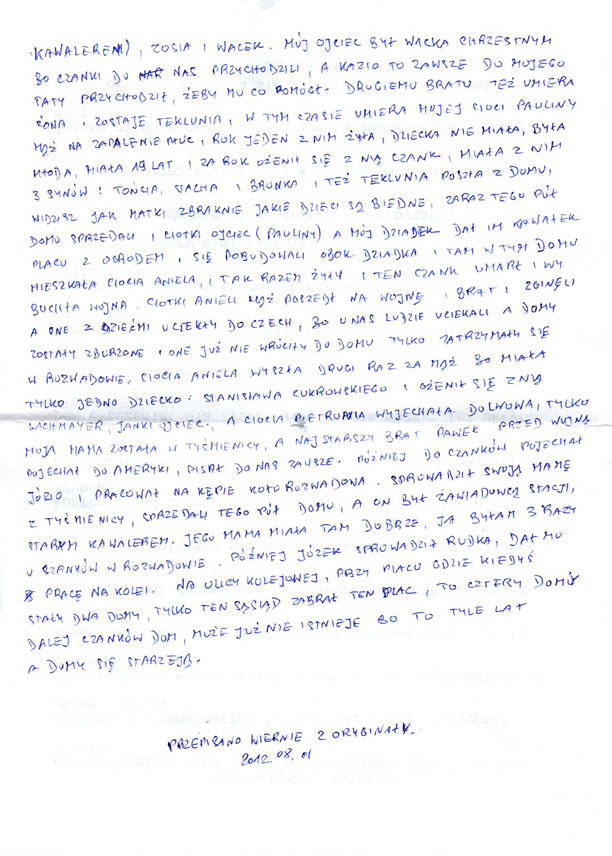 KAWALEREM), ZOSIA I WACEK. MÓJ OJCIEC BYŁ WACKA CHRZESTNYM
BO CZANKI DO NAS PRZYCHODZILI, A KAZIO TO ZAWSZE DO MOJEGO
TATY PRZYCHODZIŁ, ŻEBY MU CO POMÓGŁ. DRUGIEMU BRATU TEŻ UMIERA
ŻONA I ZOSTAJE TEKLUNIA, W TYM CZASIE UMIERA MOJEJ CIOCI PAULINY
MĄŻ NA ZAPALENIE PŁUC, ROK JEDEN Z NIM ŻYŁA, DZIECKA NIE MIAŁA, BYŁA
MŁODA, MIAŁA 19 LAT I ZA ROK OŻENIŁ SIĘ Z NIĄ CZANK, MIAŁA Z NIM
3 SYNÓW: TOŃCIA, STACHA I BRONKA I TEŻ TEKLUNIA POSZŁA Z DOMU,
WIDZISZ JAK MATKI ZBRAKNIE JAKIE DZIECI SĄ BIEDNE, ZARAZ TEGO PÓŁ
DOMU SPRZEDALI I CIOTKI OJCIEC (PAULINY) A MÓJ DZIADEK DAŁ IM KAWAŁEK
PLACU Z OGRODEM, I SIĘ POBUDOWALI OBOK DZIADKA I TAM W TYM DOMU
MIESZKAŁA CIOCIA ANIELA, I TAK RAZEM ŻYŁY I TEN CZANK UMARŁ I WY
BUCHŁA WOJNA. CIOTKI ANIELI MĄŻ POSZEDŁ NA WOJNĘ I BRAT I ZGINĘLI
A ONE Z DZIEĆMI UCIEKŁY DO CZECH, BO U NAS LUDZIE UCIEKALI A DOMY
ZOSTAŁY ZBURZONE I ONE JUŻ NIE WRÓCIŁY DO DOMU TYLKO ZATRZYMAŁY SIĘ
W ROZWADOWIE, CIOCIA ANIELA WYSZŁA DRUGI RAZ ZA MĄŻ BO MIAŁA
TYLKO JEDNO DZIECKO: STANISŁAWA CUKROWSKIEGO I OŻENIŁ SIĘ Z NIĄ
WACHMAYER, JANKI OJCIEC, A CIOCIA PIETRUNIA WYJECHAŁA DO LWOWA, TYLKO
MOJA MAMA ZOSTAŁA W TYŚMIENICY, A NAJSTARSZY BRAT PAWEŁ PRZED WOJNĄ
POJECHAŁ DO AMERYKI, PISAŁ DO NAS ZAWSZE. PÓŹNIEJ DO CZANKÓW POJECHAŁ
JÓZIO I PRACOWAŁ NA KĘPIE KOŁO ROZWADOWA. SPROWADZIŁ SWOJĄ MAMĘ
Z TYŚMIENICY, SPRZEDALI TEGO PÓŁ DOMU, A ON BYŁ ZAWIADOWCĄ STACJI,
STARYM KAWALEREM. JEGO MAMA MIAŁA TAM DOBRZE, JA BYŁAM 3 RAZY
U CZANKÓW W ROZWADOWIE. PÓŹNIEJ JÓZEK SPROWADZIŁ RUDKA, DAŁ MU
PRACĘ NA KOLEI. NA ULICY KOLEJOWEJ, PRZY PLACU GDZIE KIEDYŚ
STAŁY DWA DOMY, TYLKO TEN SĄSIAD ZABRAŁ TEN PLAC, TO CZTERY DOMY
DALEJ CZANKÓW DOM, MOŻE JUŻ NIE ISTNIEJE BO TO TYLE LAT
A DOMY SIĘ STARZEJĄ.
PRZEPISANO WIERNIE Z ORYGINAŁU.
2012.08.01